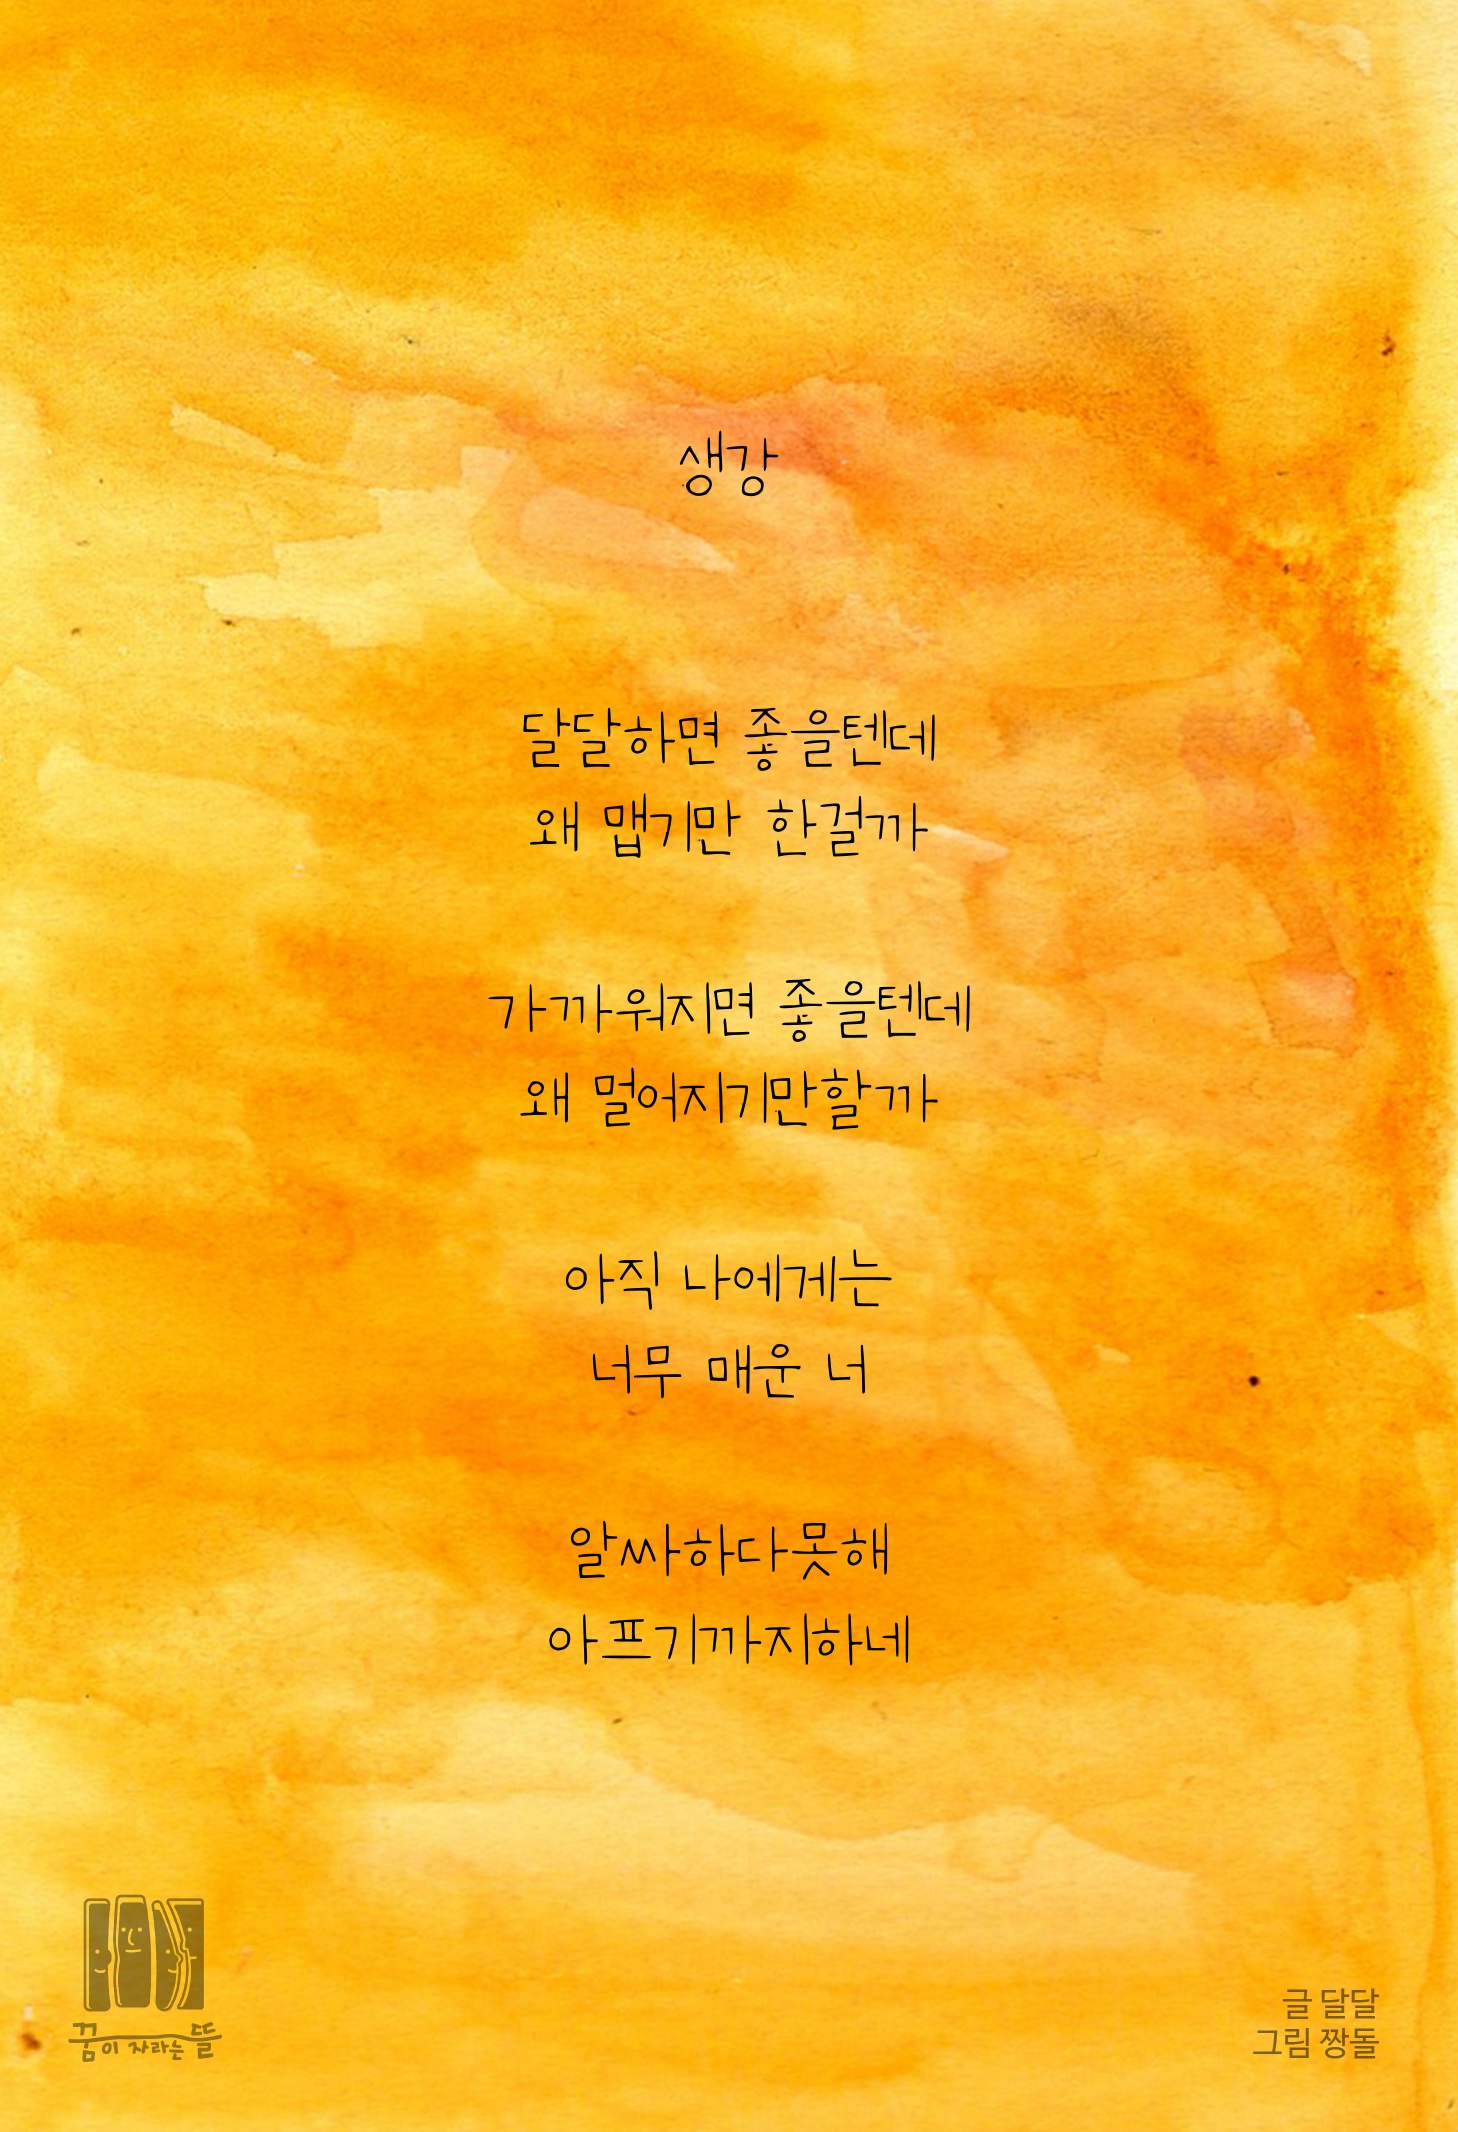 생강
달달하면 좋을텐데
왜 맵기만 한걸까
가까워지면 좋을텐데
왜 멀어지기만할까
아직 나에게는
너무 매운 너
알싸하다못해
아프기까지하네
꿈이 자라는 뜰
글 달달
그림 짱돌